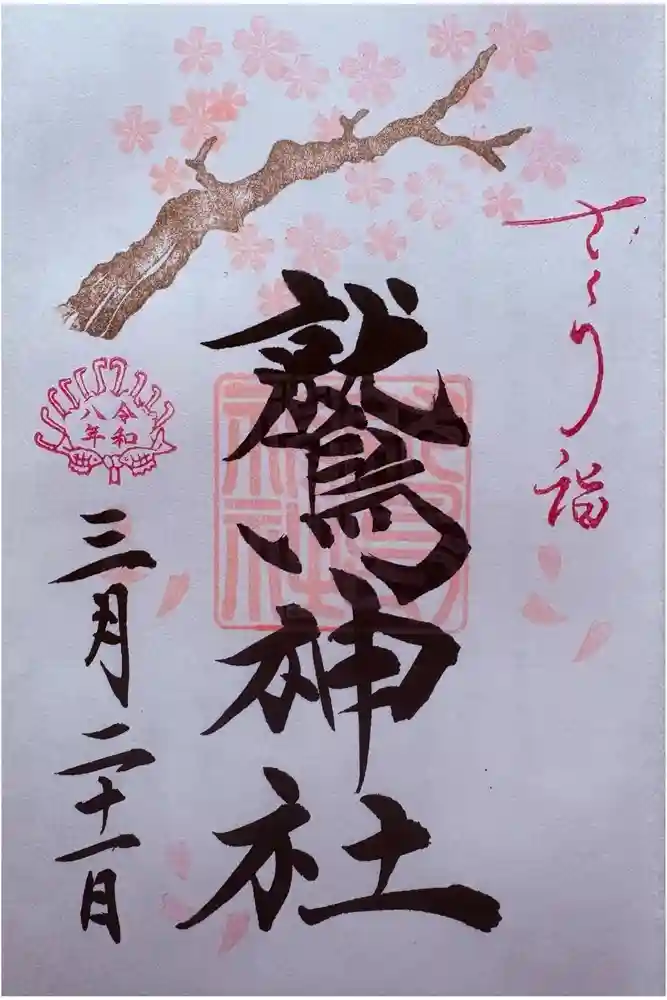 さくら詣
鷲神社
鷲神社
令和
八年
三月二十一日